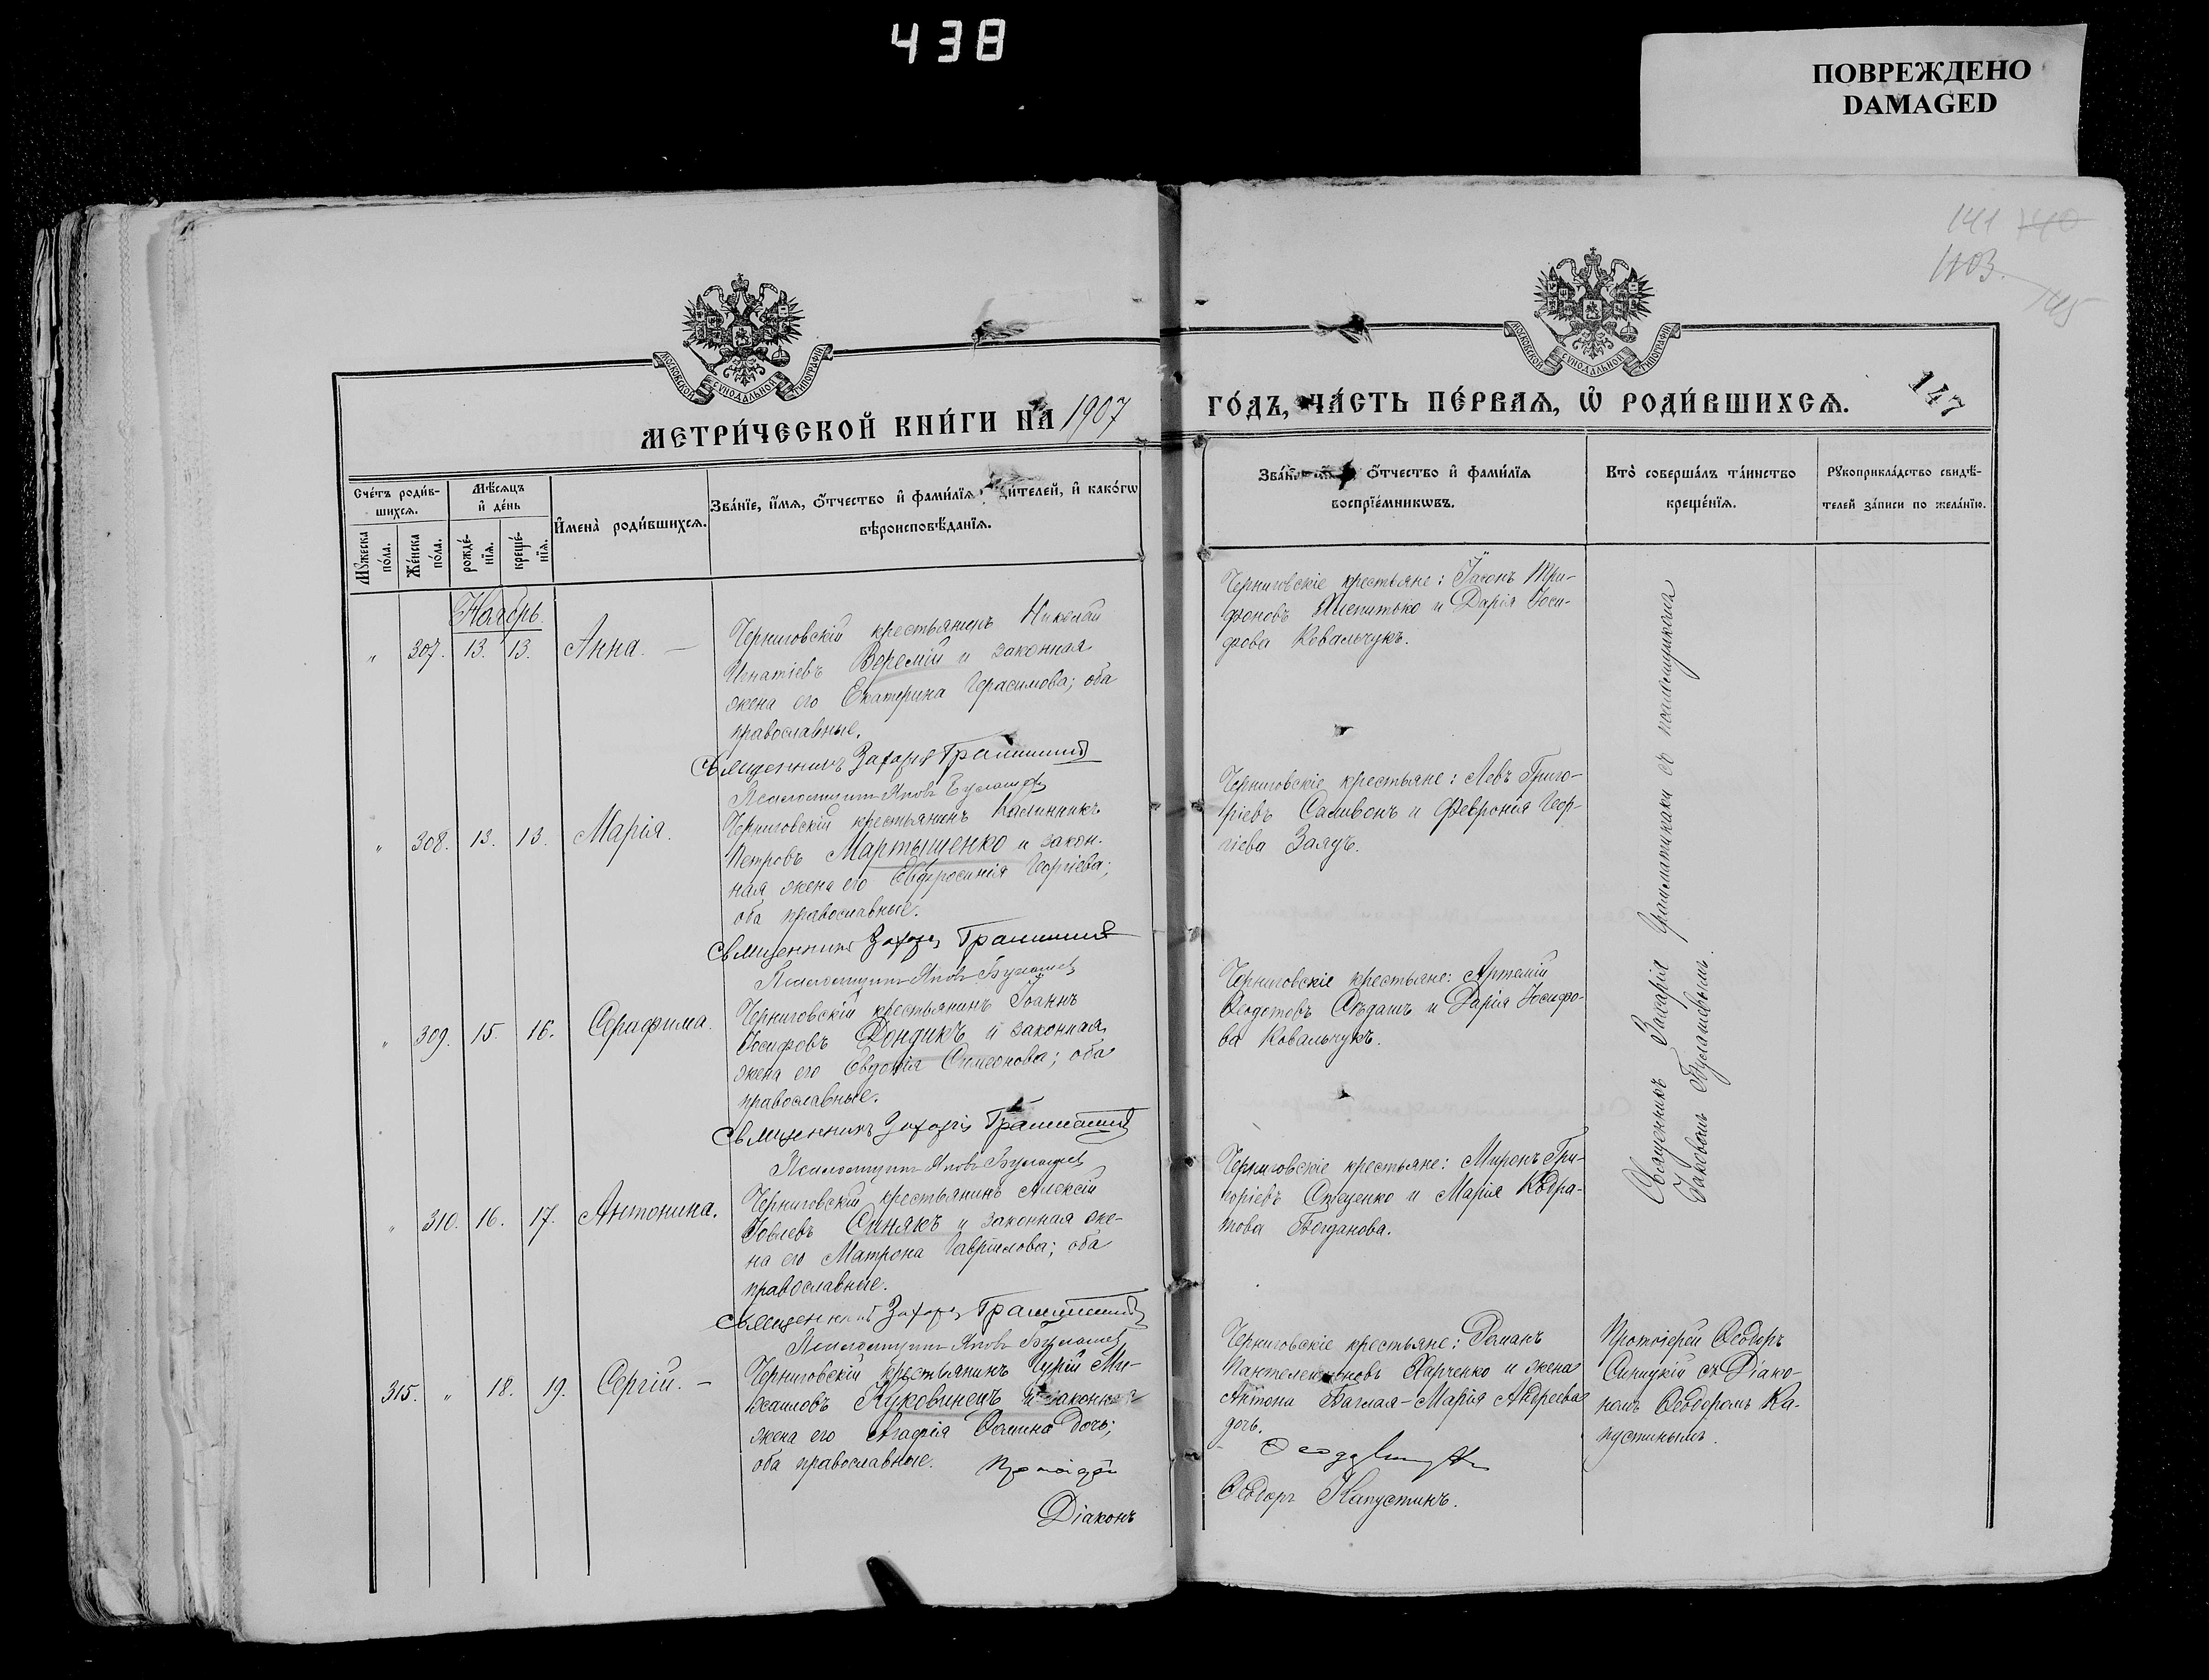 438
ПОВРЕЖДЕНО
DAMAGED
141 140
1103.
145
147
МОСКОВСКОЙ СѴНОДАЛЬНОЙ ТИПОГРАФІИ
МОСКОВСКОЙ СѴНОДАЛЬНОЙ ТИПОГРАФІИ
МЕТРИ́ЧЕСКОЙ КНИ́ГИ НА 1907
ГО́ДЪ, ЧА́СТЬ ПЕ́РВАѦ, Ѡ РОДИ́ВШИХСѦ.
Сче́тъ роди́в-
шихсѧ.
Мꙋ́жеска
по́ла.
Же́нска
по́ла.
Мѣ́сѧцъ
и҆ де́нь
рожде́-
нїѧ.
креще́-
нїѧ.
И҆мена̀ роди́вшихсѧ.
Зва́нїе, и҆́мѧ, ѻ҆́тчество и҆ фами́лїѧ роди́телей, и҆ како́гѡ
вѣроисповѣ́данїѧ.
Зва́нїе, ѻ҆́тчество и҆ фами́лїѧ
воспрїе́мникѡвъ.
Кто̀ соверша́лъ та́инство
креще́нїѧ.
Рꙋкоприкла́дство свидѣ́-
телей за́писи по жела́нїю.
Ноябрь.
" 307. 13. 13. Анна. —
Черниговскій крестьянинъ Николай
Игнатіевъ Веремій и законная
жена его Екатерина Герасимова; оба
православные.
Священникъ Захарія
Псаломщикъ Яковъ Булашев
Черниговскіе крестьяне: Іасонъ Три-
фоновъ и Дарія Іоси-
фова Ковальчукъ.
" 308. 13. 13. Марія.
Черниговскій крестьянинъ Калинникъ
Петровъ Мартыщенко и закон-
ная жена его Евфросинія Георгіева;
оба православные.
Священникъ Захарія
Псаломщикъ Яковъ Булашев
Черниговскіе крестьяне: Левъ Григо-
ріевъ Саливонъ и Февронія Геор-
гіева Заяцъ.
" 309. 15. 16. Серафима.
Черниговскій крестьянинъ Іоаннъ
Іосифовъ Дондикъ и законная
жена его Евдокія Симеонова; оба
православные.
Священникъ Захарія
Псаломщикъ Яковъ Булашев
Черниговскіе крестьяне: Артемій
Ѳеодотовъ Сѣдашъ и Дарія Іосифо-
ва Ковальчукъ.
" 310. 16. 17. Антонина.
Черниговскій крестьянинъ Алексій
Іовлевъ Синякъ и законная же-
на его Матрона Гавріилова; оба
православные.
Священникъ Захарія
Псаломщикъ Яковъ Булашев
Черниговскіе крестьяне: Миронъ Гри-
горіевъ Стеценко и Марія Кодра-
това Богданова.
Священникъ Захарія съ псаломщикомъ
Іаковомъ Булашевымъ.
315. " 18. 19. Сергій. —
Черниговскій крестьянинъ Гурій Ми-
хаиловъ Куковинецъ и законная
жена его Агафія Ѳомина дочь;
оба православные. Протоіерей
Діаконъ
Черниговскіе крестьяне: Романъ
Пантелеимоновъ Харченко и жена
Антона Баглая-Марія Андреева
дочь.
Ѳеодоръ Капустинъ.
Протоіерей Ѳеодоръ
Синицкій съ Діако-
номъ Ѳеодоромъ Ка-
пустинымъ.